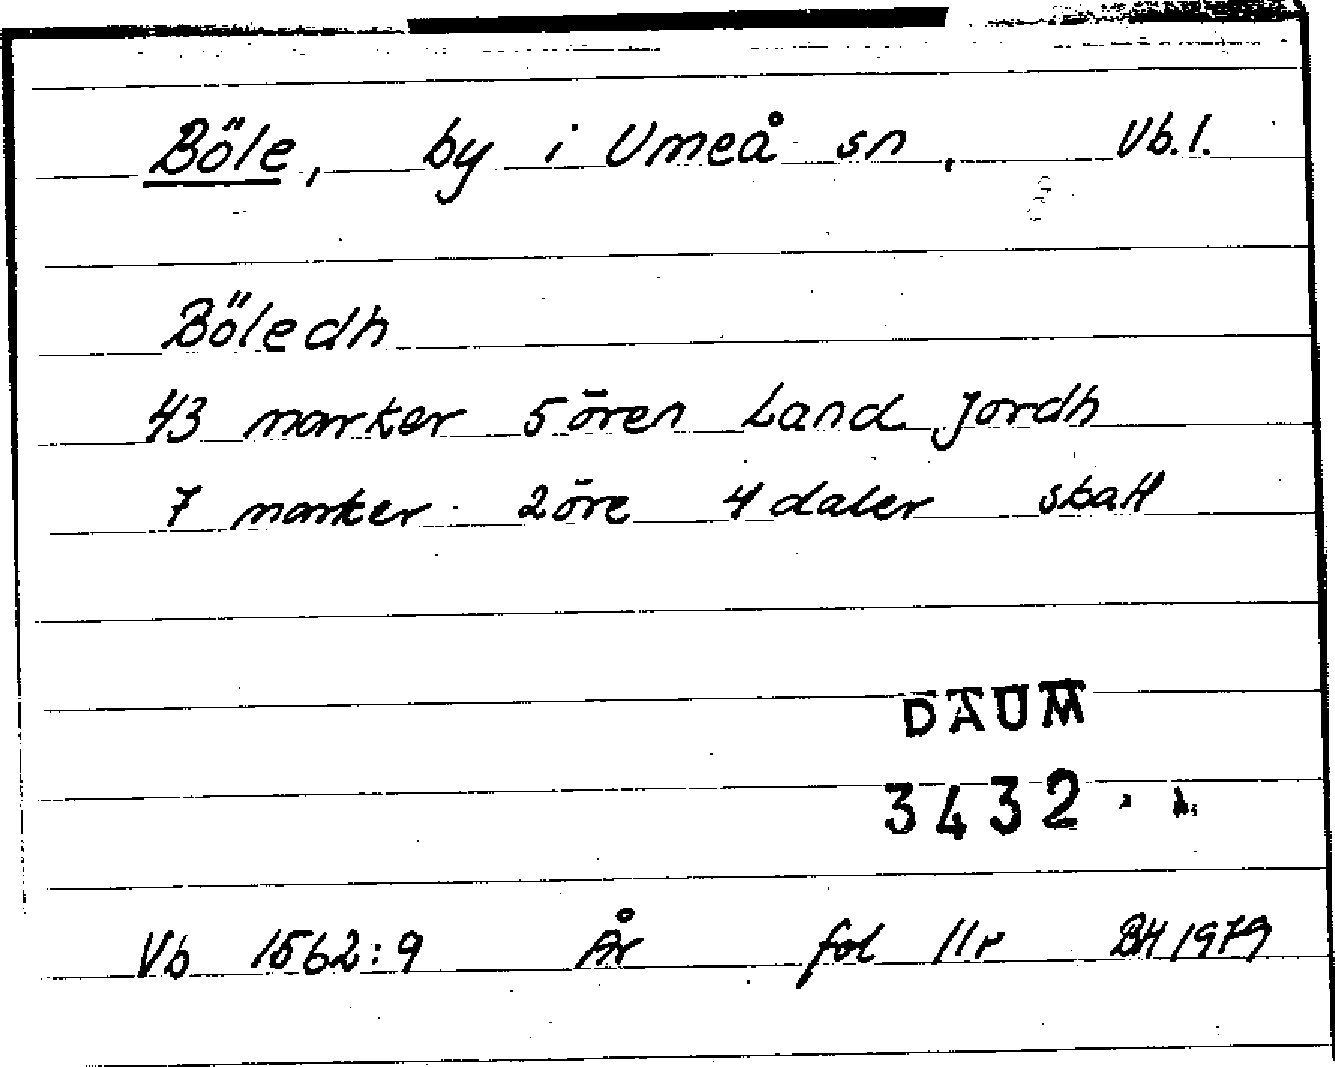 Böle, by i Umeå sn, Vb.l.
Böledh
43 marker 5 ören Land Jordh
7 marker 2 öre 4 daler skatt
DAUM
3432
Vb 1562:9 År fol 11r BH 1979